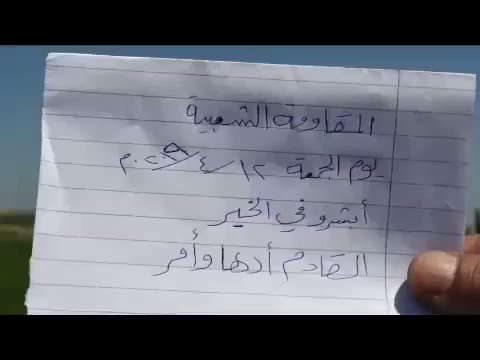 المقاومة الشعبية
يوم الجمعة ١٢/٤/٢٠١٩م
أبشرو في الخير
القادم أدها وأمر